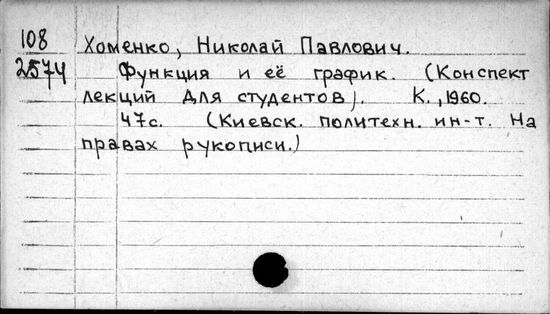 108 Хоменко, Николай Павлович.
2574 Функция и её график. (Конспект
лекций для студентов). К., 1960.
47с. (Киевск. политехн. ин-т. На
правах рукописи.)